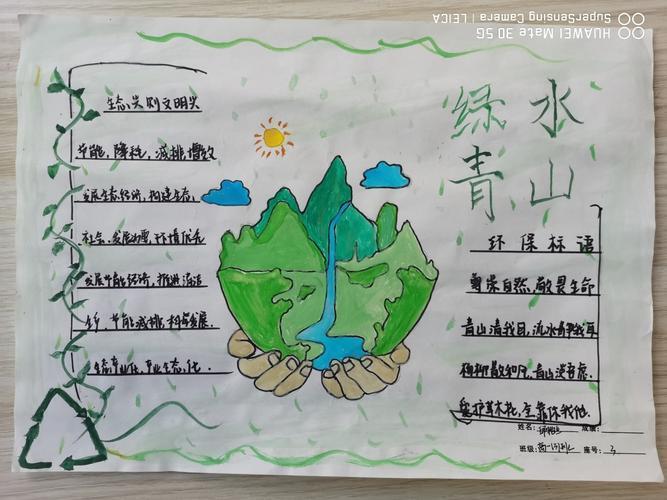 绿水
青山
生态兴则文明兴
节能,降耗,减排,增效
发展生态经济,构建生态,
社会、发展 环境优先
发展节能经济,推进清洁
节能减排,构 发展.
生态产业化,产业生态化.
环保标语
尊崇自然,敬畏生命
青山清我目,流水静我耳
杨柳 和风,青山 
爱护草木花,全靠你我他.
姓名: 成绩:
班级: 座号:3
HUAWEI Mate 30 5G
SuperSensing Camera | LEICA